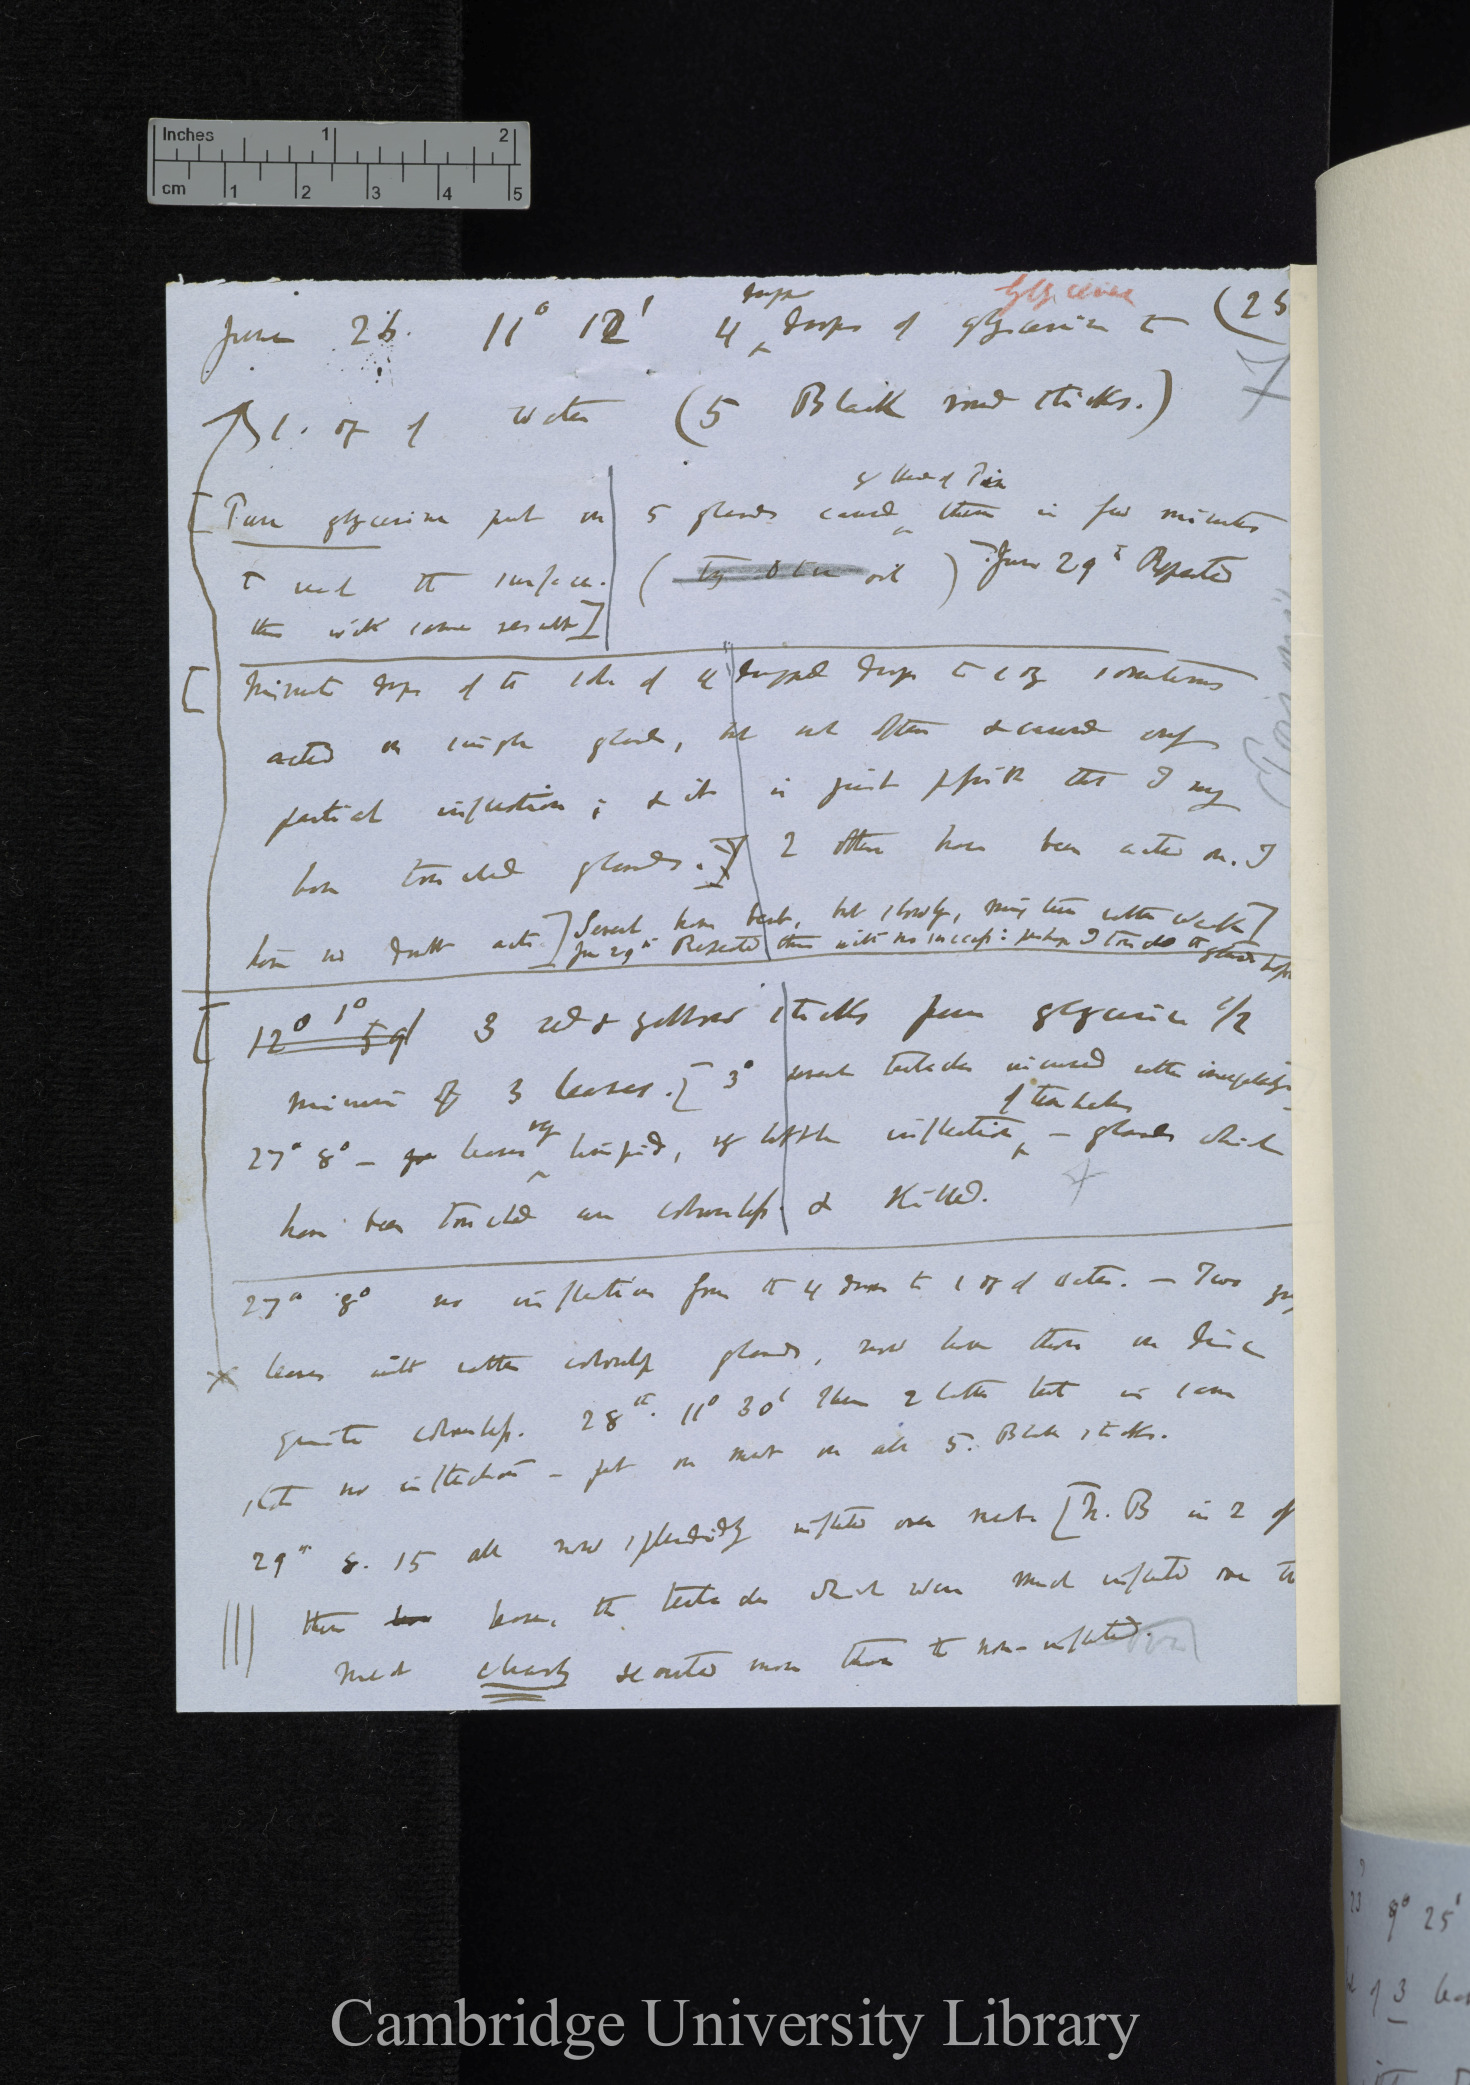 Inches 1 2
cm 1 2 3 4 5
Glycerine
(25
June 26. 11° 12' 4 drops of glycerine to
1. oz of water (5 Black round sticks.)
by Head of Pin
[Pure glycerine put on 5 glands caused them in few minutes
to reach the surface. ( oil ) June 29th Repeated
this with same result]
[Minute drops of the sol. of 4 drops to 1 oz sometimes
acted on single glands, but not often & caused only
partial inflection; & it is just possible that I may
have touched glands.] 2 others have been acted on. I
have no doubt acts] Several have bent, but slowly, rather weak]
June 29th Repeated this with no success: perhaps I touched the glands before
[12° 3 red & yellow sticks pure glycerine 1/2
minim of 3 leaves. [3° several tentacles incurved rather irregularly
of tentacles
27th 8° — leaves limpid, very little inflection — glands which
have been touched are colourless & killed.
27th 8° no inflection from the 4 drops to 1 oz of water. — Two
leaves with rather colourless glands, now have them on disc
quite colourless. 28th. 11° 30' These 2 latter left in same
state no inflection — put on meat on all 5. Black sticks.
29th 8. 15 all now splendidly inflected over meat [N. B in 2 of
these leaves, the tentacles which were much inflected over the
meat clearly secreted more than the non-inflected.
9° 25'
of 3
Cambridge University Library